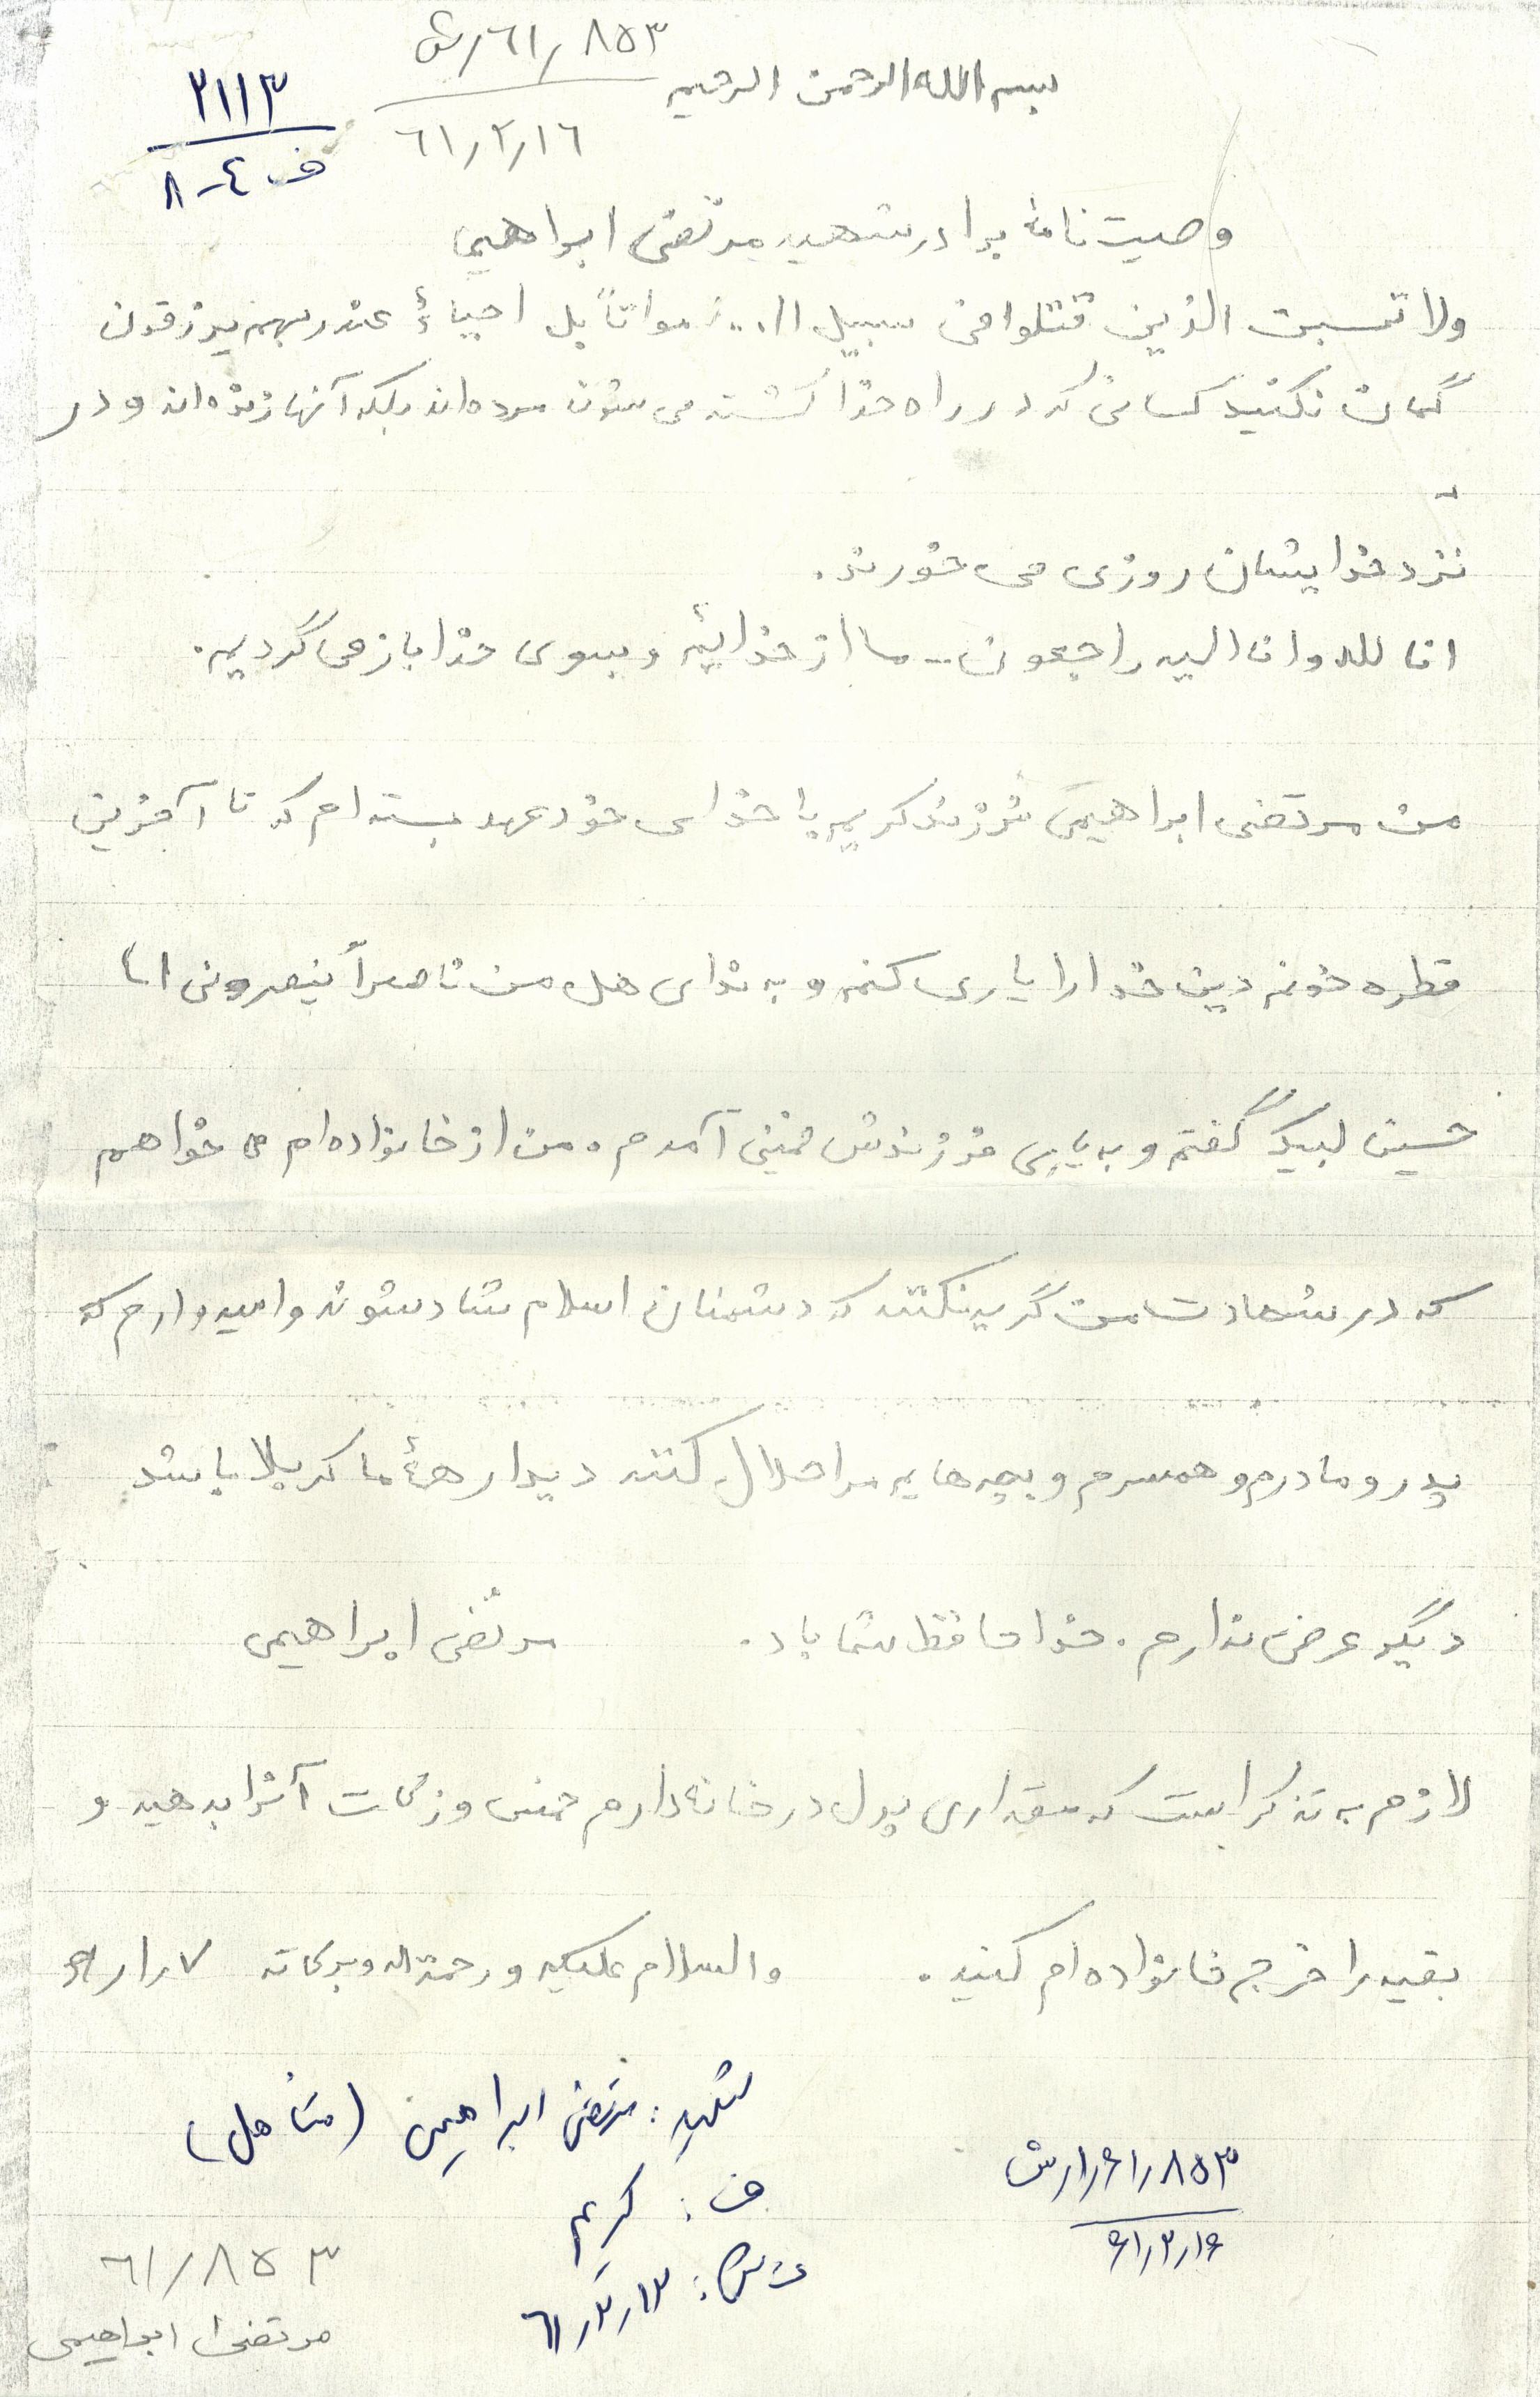 ۸۵۳/۶۱/ش
۶۱/۲/۱۶
۲۱۱۳
ف ۴-۸
بسم الله الرحمن الرحیم
وصیت نامهٔ برادر شهید مرتضی ابراهیمی
ولا تحسبن الذین قتلوا فی سبیل ا... امواتاً بل احیاءٌ عند ربهم یرزقون
گمان نکنید کسانی که در راه خدا کشته می شوند مرده اند بلکه آنها زنده اند و در
نزد خدایشان روزی می خورند.
انا لله وانا الیه راجعون - ما از خدائیم و بسوی خدا باز می گردیم.
من مرتضی ابراهیمی فرزند کریم با خدای خود عهد بسته ام که تا آخرین
قطره خونم دین خدا را یاری کنم و به ندای هل من ناصراً ینصرونی اما
حسین لبیک گفتم و به یاری فرزندش خمینی آمدم. من از خانواده ام می خواهم
که در شهادت من گریه نکنند که دشمنان اسلام شاد شوند و امیدوارم که
پدر و مادرم و همسرم و بچه هایم مرا حلال کنند دیدار همهٔ ما کربلا باشد
دیگر عرضی ندارم. خدا حافظ شما باد. مرتضی ابراهیمی
لازم به تذکر است که مقداری پول در خانه دارم خمس و زکات آنرا بدهید و
بقیه را خرج خانواده ام کنید. والسلام علیکم و رحمة اله و برکاته
شهید: مرتضی ابراهیمی (متأهل)
ف: کریم
ت ش: ۶۱/۲/۱۳
۸۵۳/۶۱/۱/ش
۶۱/۲/۱۶
۶۱/۸۵۳
مرتضی ابراهیمی